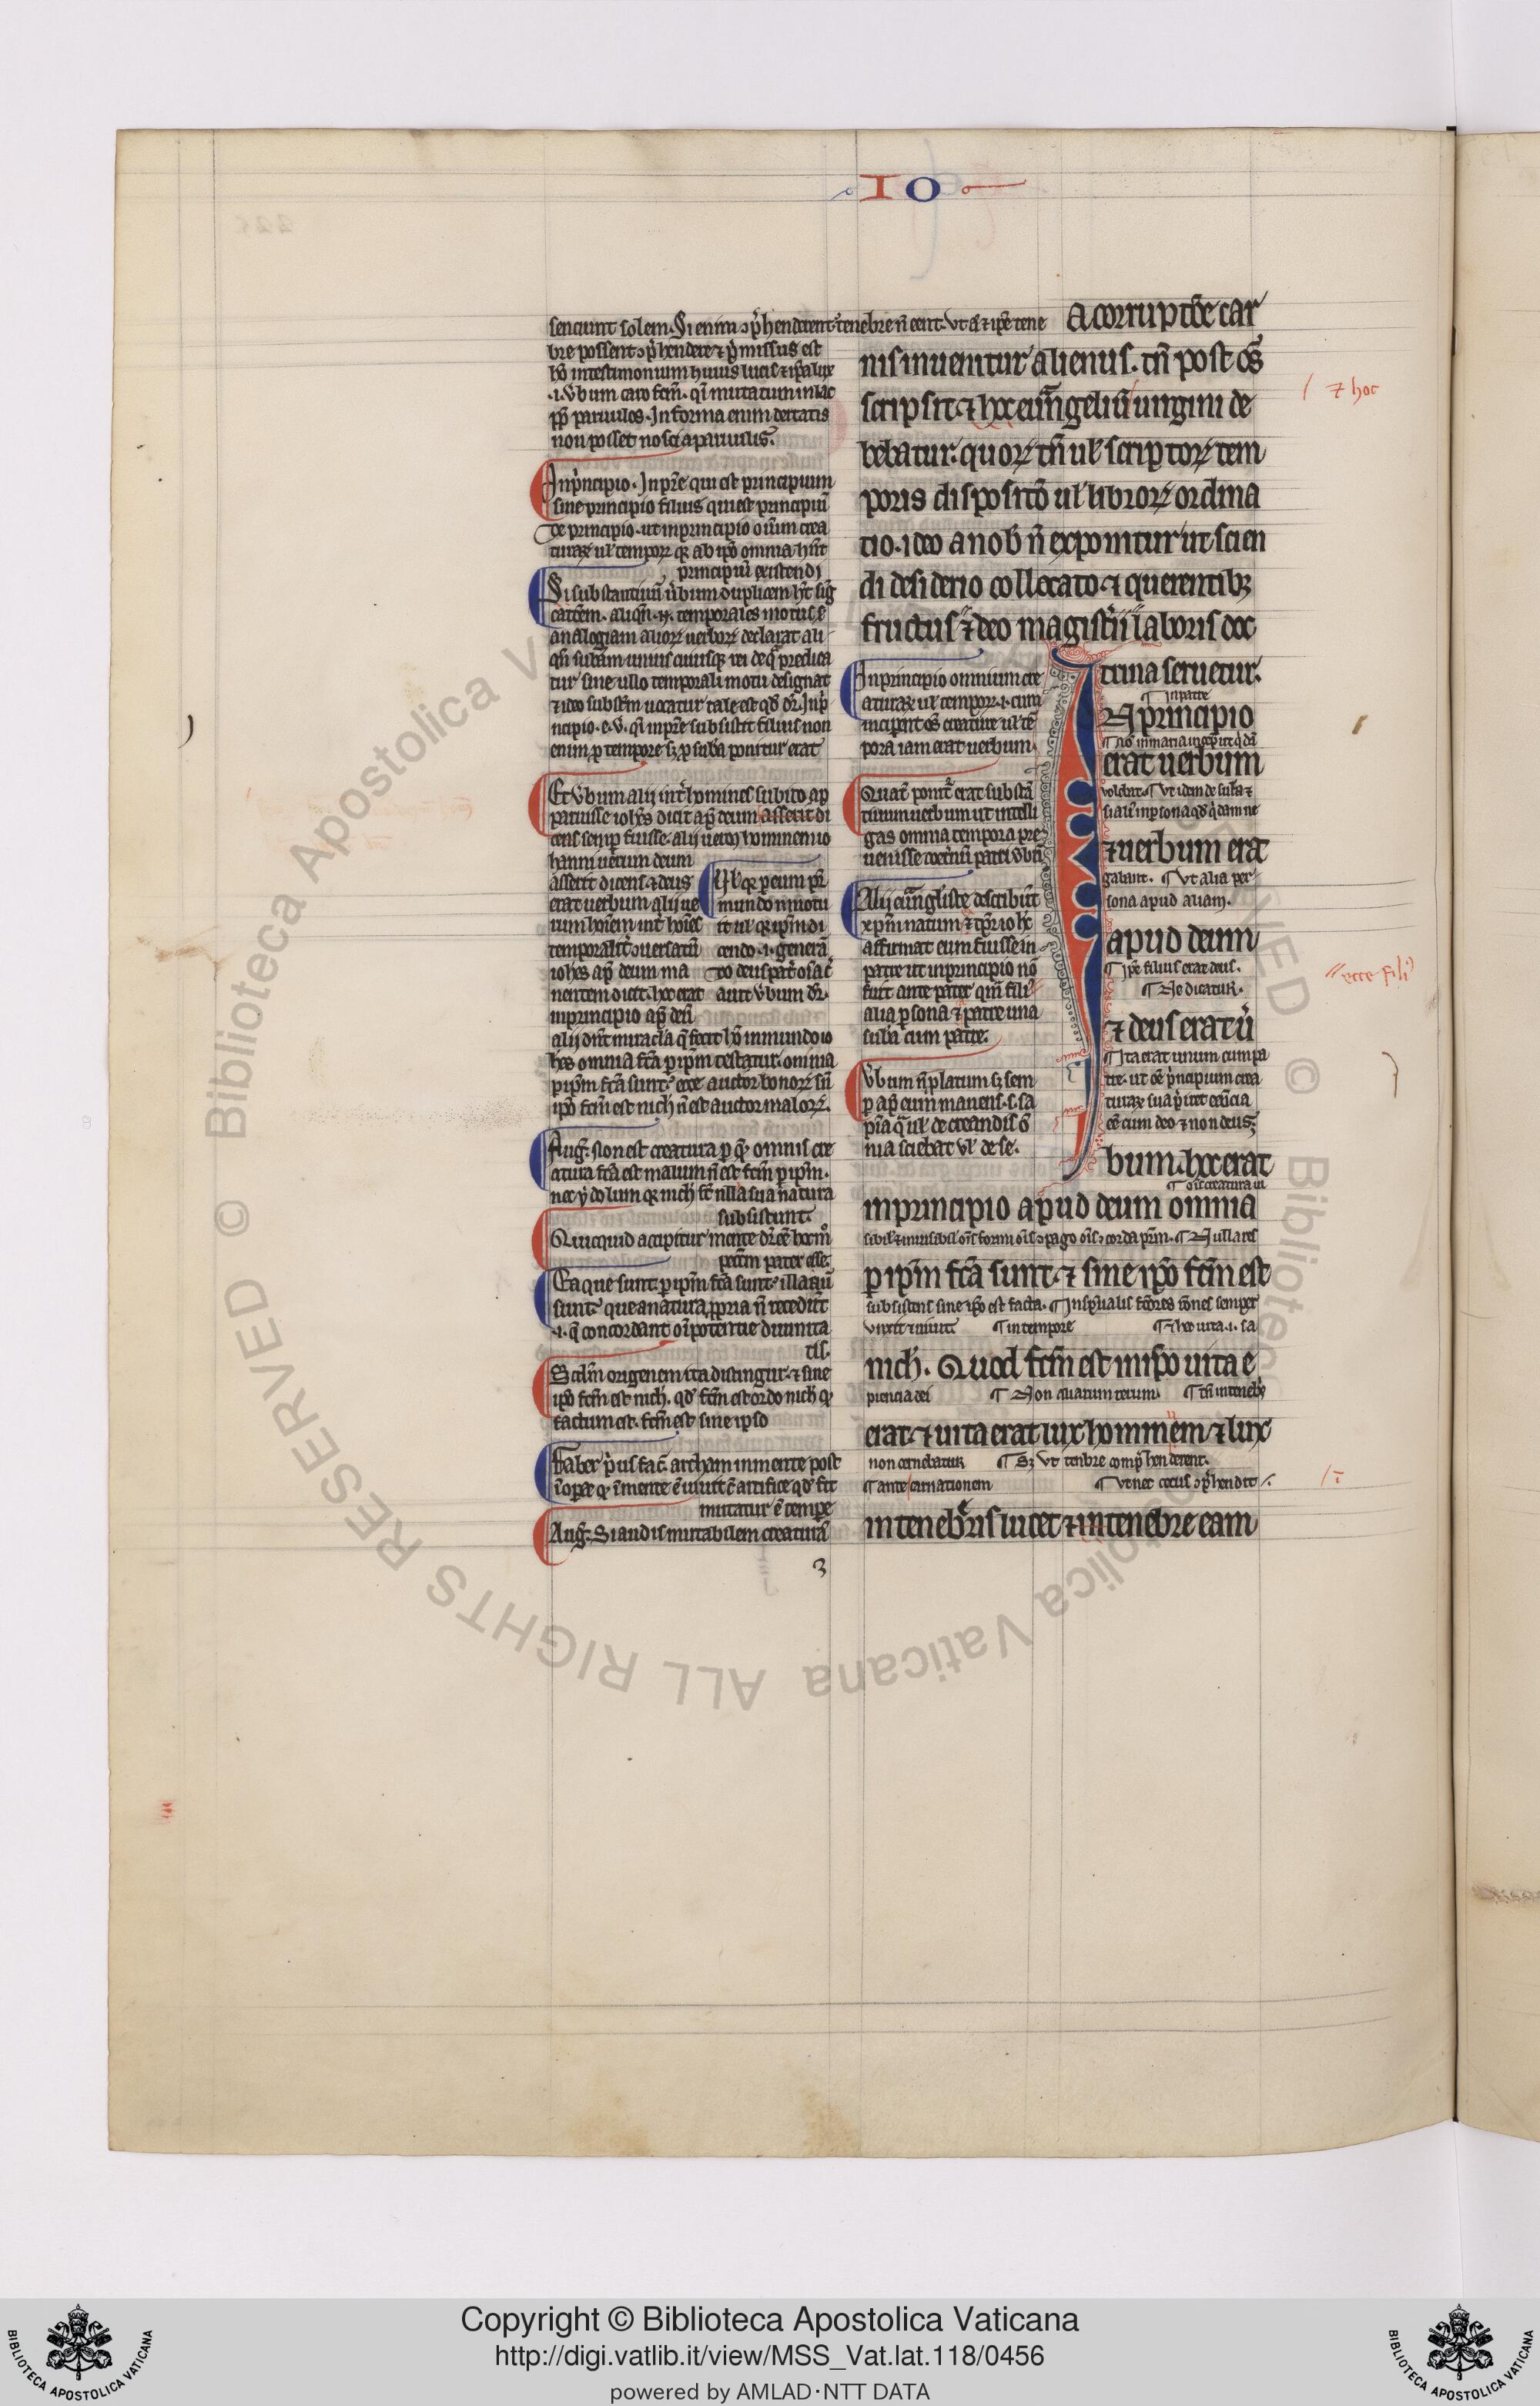 IO
sentiunt solem. Si enim ɔp̄henderent tenebre n̄ eent. Vt ĩ & ip̄e tene
bre possent ɔp̄hendere & p̄missus est
ho in testimonium huius lucis & ip̄a lux
.i. ůbum caro fc̄m. q̇ mutatum in lac
pp̄ paruulos. In forma enim deitatis
non posset nosci a paruulis.
In p̄ncipio. In pr̄e qui est principium
sine principio filius qui est principiū
de principio. ut in principio oīum crea
turaꝝ ul' tempoꝝ qꝫ ab ip̄o omnia hn̄t
principiū existendi
Si substantiuū ůbum duplicem hꝫ sig̃
catōem. aliqn̄ .n. temporales motus s̄
analogiam alioꝝ uerboꝝ declarat ali
qn̄ sub̄am unius cuiusqꝫ rei de q̃ predica
tur sine ullo temporali motu designat
& ideo subst̄m uocatur tale est qd̄ dr̄. In p̄
ncipio .e. ů. qi in pr̄e subsistit filius non
enim ꝓ tempore sꝫ ꝓ sub̄a ponitur erat
Et ůbum alij int̄ homines subito ap
paruisse ioh̄es dicit ap̄ deum asserit di
cens semp̄ fuisse. alij ueꝝ hominem io
hanni uerum deum
asserit dicens. & deus
erat uerbum alij ue
rum hoīem int̄ hoīes
temporalit̄ ɔuersatū
ioh̄es ap̄ deum ma
nentem dicit. hoc erat
in principio ap̄ deū
Ul' qꝫ p eum pr̄
mundo innotu
it ul' qꝫ ip̄m di
cendo .i. generā
do deus pat̄ oīa c̄
auit ůbum dr̄.
alij dn̄t miracl̄a q̃ fecit hō in mundo io
h̄es omnia fc̄a p ip̄m testatur. omnia
p ip̄m fc̄a sunt. ecce auctor bonoꝝ sn̄
ip̄o fc̄m est nich̄ n̄ est auctor maloꝝ.
Aug̃. Non est creatura p q̃ omnis cre
atura fc̄a est malum n̄ est fc̄m p ip̄m.
nec ydolum qꝫ nich̄ st̄ nlla sua natura
subsistunt.
Quicquid accipitur mente dr̄ eē hoc in
pectm̄ pater esse.
Ea que sunt. p ip̄m fc̄a sunt. illa aū
sunt que a natura ꝓpria n̄ recedūt
.i. q̃ concordant oīpotentie diuinita
tis.
Scdm̄ origenem ita distinguit̄. & sine
ip̄o fc̄m est nich̄. qd̄ fc̄m est ordo nich̄ qꝫ
factum est. fc̄m est sine ipso
Faber p̄us fac̄ archam in mente post
ī oꝑe qꝫ ī mente ē uiuit c̄ artifice qd̄ fit
mutatur ē tempe
Aug̃. Si audis mutabilem creaturā
3
A corruptōe car
nis inuenitur alienus. tn̄ post oēs
scripsit. & hoc euāngeliū uirgini de
bebatur. quoꝝ tn̄ ul' scriptoꝝ tem
poris dispositō ul' libroꝝ ordina
tio. ideo a nob̄ n̄ exponitur ut scien
di desiderio collocato. & querentibꝫ
fructus & deo magist̄ii laboris doc
trina seruetur.
In principio omnium cre
aturaꝝ ul' tempoꝝ .i. cum
inciperent oēs creature ul' tē
pora iam erat uerbum.
Quat̄ ponit̄ erat substā
tiuum uerbum ut intelli
gas omnia tempora pre
uenisse coet̄nū patri ůbū
Alij euāngliste describūt
xp̄m natum & tp̄r ioh̄
affirmat eum fuisse in
patre ut in principio nō
fuit ante pater qm̄ fili'
alia psona & patre una
sub̄a cum patre.
ůbum n̄ platum sꝫ sem
p ap̄ eum manens .s. sa
pīa q̃ ul' de creandis o
nia sciebat ul' de se.
¶ in patre
IN principio
erat uerbum
uolebat. ¶ Vt idem de sub̄a &
& uerbum erat
gabant. ¶ Vt alia per
sona apud aliam.
apud deum
¶ Ip̄e filius erat deus.
¶ Ne dicatur.
& deus erat ů
¶ Ita erat unum cum pa
tre. ut oē p̄ncipium crea
eē cum deo & non deus.
bum. hoc erat
¶ oīs creatura in
in principio apud deum omnia
¶ Nulla res
p ip̄m fc̄a sunt. & sine ip̄o fc̄m est
subsistens sine ip̄o est facta. ¶ In sp̄ualis semper
uixit & uiuit ¶ in tempore ¶ & hoc uita .i. sa
nich̄. Quod fc̄m est in ip̄o uita e
piencia dei ¶ Non quarum rerum ¶ tn̄ in teneb̄
erat. & uita erat lux hominem & lux
non cernebatur ¶ Sꝫ ut tenbre comp̄henderent.
¶ ante carnationem ¶ Vt nec cecus ɔp̄hendit
in tenebris lucet & in tenebre eam
& hoc
ecce fili'
ī
Copyright © Biblioteca Apostolica Vaticana
http://digi.vatlib.it/view/MSS_Vat.lat.118/0456
powered by AMLAD·NTT DATA
BIBLIOTECA APOSTOLICA VATICANA
BIBLIOTECA APOSTOLICA VATICANA
© Biblioteca Apostolica Vaticana ALL RIGHTS RESERVED